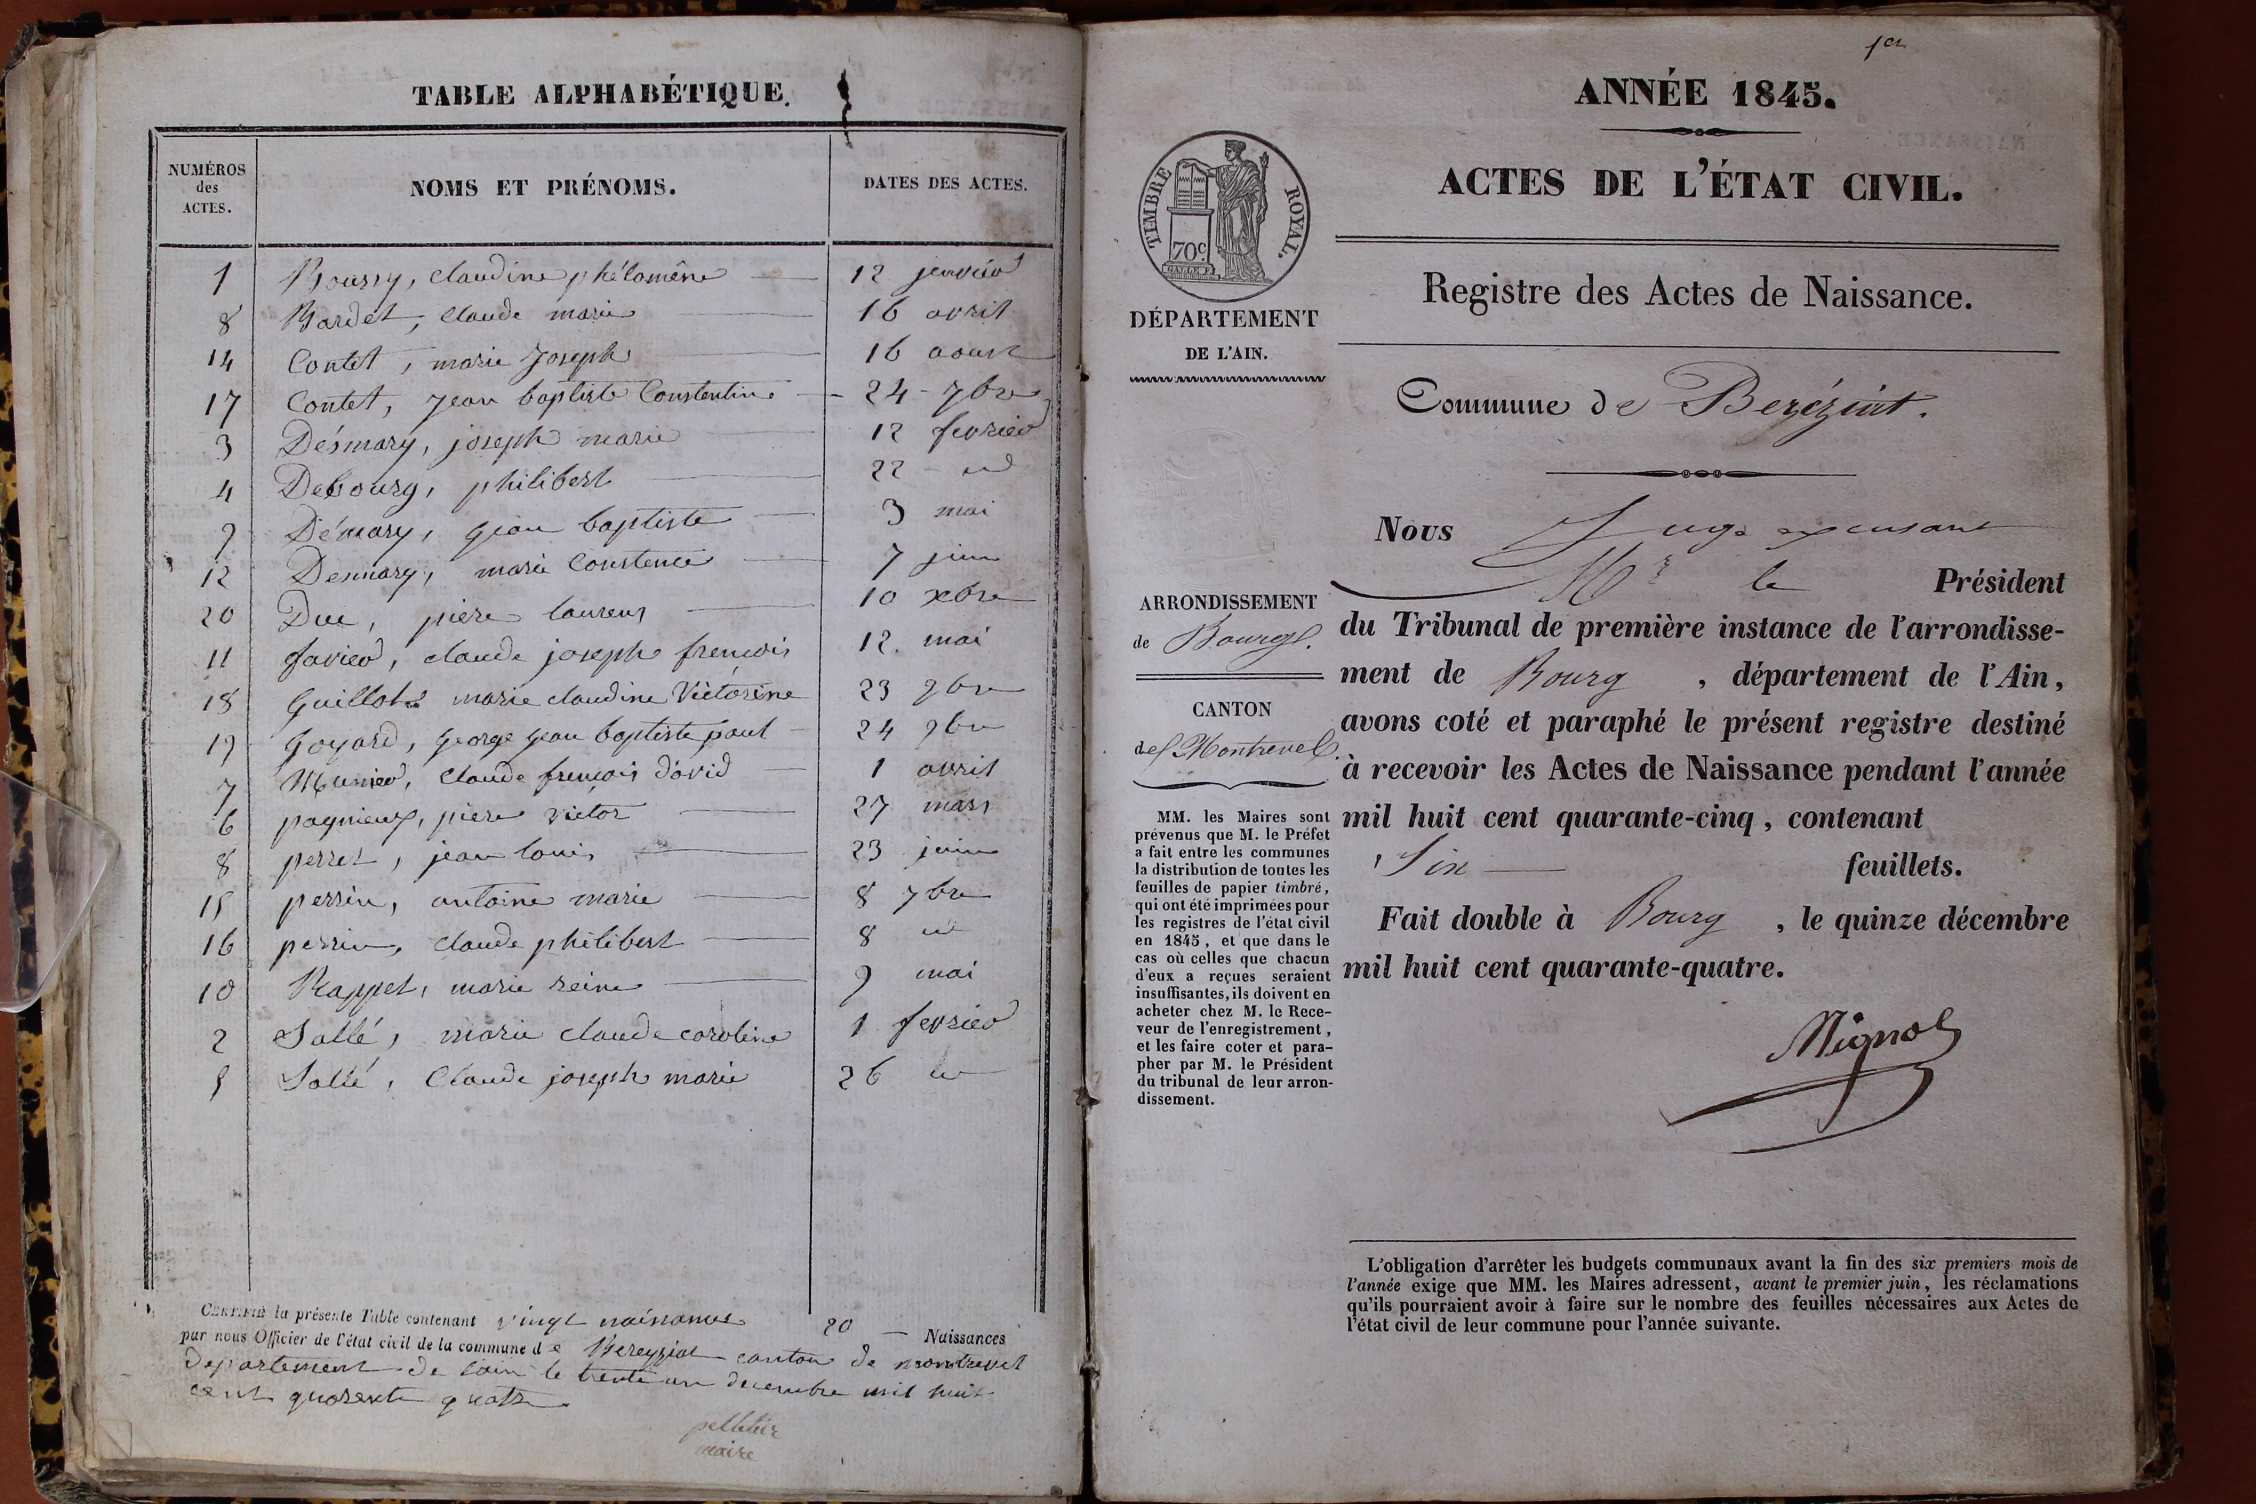 TABLE ALPHABÉTIQUE.
NUMÉROS des ACTES.
NOMS ET PRÉNOMS.
DATES DES ACTES.
1 Boussy, claudine phélomène 12 janvier
8 Bardet, Claude marie 16 avril
14 Contet, marie Joseph 16 aoust
17 Contet, jean baptiste Constentin 24 - 7bre
3 Désmary, joseph marie 12 fevrier
4 Debourg, philibert 22 - id
9 Démary, jean baptiste 3 mai
12 Desmary, marie Constence 7 juin
20 Duc, piere laurent 10 xbre
11 favier, claude joseph francois 12. mai
18 Guillot marie claudine Victorine 23 9bre
19 Goyard, George jean baptiste paul 24 9bre
7 Munier, Claude francois david 1 avril
6 pagnieux, piere victor 27 mars
8 perret, jean louis 23 juin
15 perrin, antoine marie 8 7bre
16 perrin, claude philibert 8 id
10 Rappet, marie reine 9 mai
2 Sallé, marie claude caroline 1 fevrier
5 Sallé, Claude joseph marie 26 id
CERTIFIÉ la présente Table contenant vingt naissances 20 — Naissances
par nous Officier de l'état civil de la commune de Béreyziat canton de montrevel
departement de l'ain le trente un decembre mil huit
cent quarente quatre
pelletier
maire
1er
ANNÉE 1845.
ACTES DE L'ÉTAT CIVIL.
TIMBRE ROYAL.
70c
Registre des Actes de Naissance.
DÉPARTEMENT
DE L'AIN.
Commune de Beréziat.
Nous Juge
Mr le Président
du Tribunal de première instance de l'arrondisse-
ment de Bourg, département de l'Ain,
avons coté et paraphé le présent registre destiné
à recevoir les Actes de Naissance pendant l'année
mil huit cent quarante-cinq, contenant
Six — feuillets.
Fait double à Bourg, le quinze décembre
mil huit cent quarante-quatre.
Mignot
ARRONDISSEMENT
de Bourg.
CANTON
de Montrevel.
MM. les Maires sont
prévenus que M. le Préfet
a fait entre les communes
la distribution de toutes les
feuilles de papier timbré,
qui ont été imprimées pour
les registres de l'état civil
en 1845, et que dans le
cas où celles que chacun
d'eux a reçues seraient
insuffisantes, ils doivent en
acheter chez M. le Rece-
veur de l'enregistrement,
et les faire coter et para-
pher par M. le Président
du tribunal de leur arron-
dissement.
L'obligation d'arrêter les budgets communaux avant la fin des six premiers mois de
l'année exige que MM. les Maires adressent, avant le premier juin, les réclamations
qu'ils pourraient avoir à faire sur le nombre des feuilles nécessaires aux Actes de
l'état civil de leur commune pour l'année suivante.